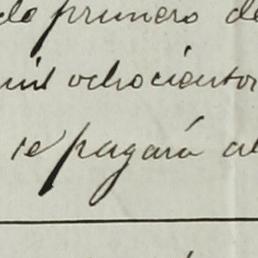 de primero de
mil ochocientos
se pagará al